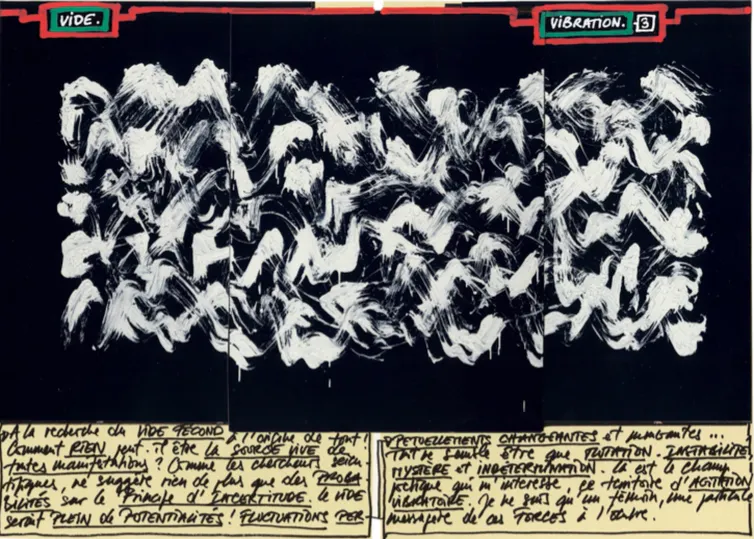 VIDE.
VIBRATION. 3
A la recherche du VIDE FÉCOND à l'origine de tout!
Comment RIEN peut-il être la SOURCE VIVE de
toutes manifestations? Comme les chercheurs scien-
tifiques, ne suggère rien de plus que des PROBA
BILITÉS sur le Principe d'INCERTITUDE. le VIDE
serait PLEIN de POTENTIALITÉS! FLUCTUATIONS PER-
PETUELLEMENTS CHANGEANTES et mouvantes...
Tout ne semble être que MUTATION. INSTABILITÉ,
MYSTERE et INDÉTERMINATION. là est le champ
poétique qui m'intéresse, ce territoire d'AGITATION
VIBRATOIRE. Je ne suis qu'un témoin, une particule
messagère de ces FORCES à l'œuvre.